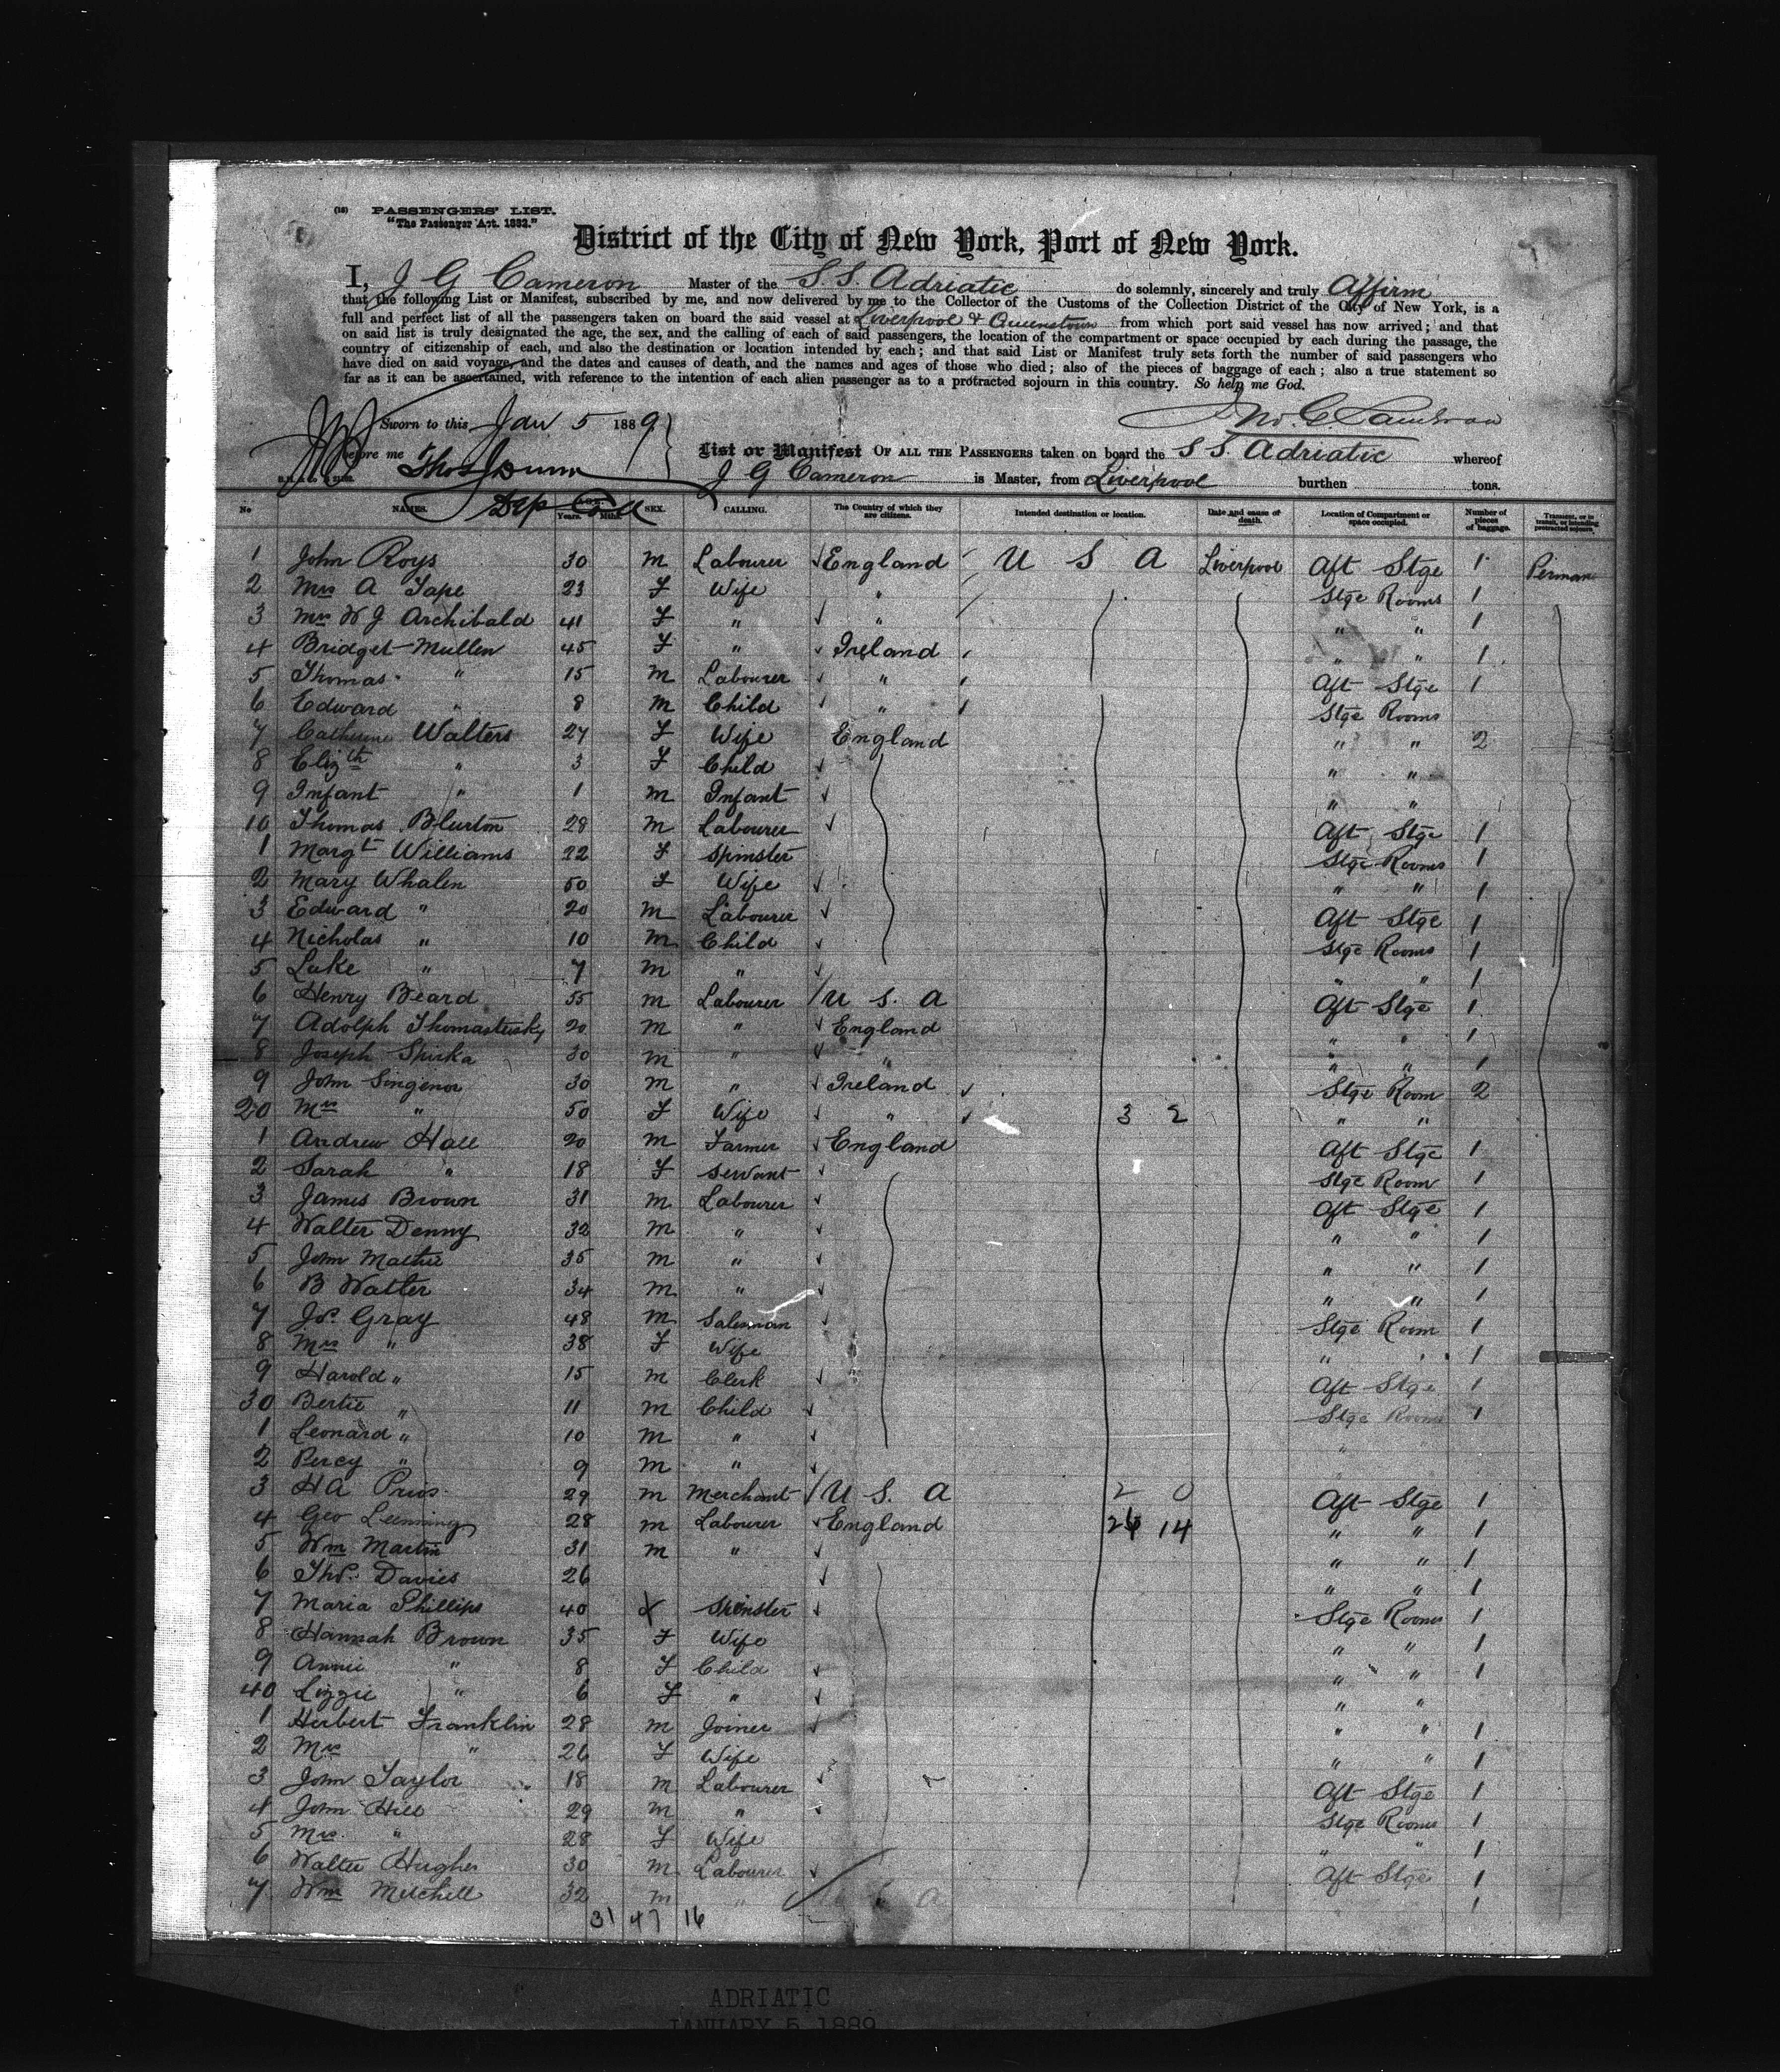 (18) PASSENGERS' LIST.
"The Passenger Act. 1882."
District of the City of New York, Port of New York.
I, J G Cameron Master of the S S. Adriatic do solemnly, sincerely and truly Affirm
that the following List or Manifest, subscribed by me, and now delivered by me to the Collector of the Customs of the Collection District of the City of New York, is a
full and perfect list of all the passengers taken on board the said vessel at Liverpool & Queenstown from which port said vessel has now arrived; and that
on said list is truly designated the age, the sex, and the calling of each of said passengers, the location of the compartment or space occupied by each during the passage, the
country of citizenship of each, and also the destination or location intended by each; and that said List or Manifest truly sets forth the number of said passengers who
have died on said voyage, and the dates and causes of death, and the names and ages of those who died; also of the pieces of baggage of each; also a true statement so
far as it can be ascertained, with reference to the intention of each alien passenger as to a protracted sojourn in this country. So help me God.
Sworn to this Jan 5 1889
before me Thos Dunn
Dep Coll
List or Manifest OF ALL THE PASSENGERS taken on board the S S. Adriatic whereof
J G Cameron is Master, from Liverpool burthen tons.
No NAMES. AGE. Years. Mths. SEX. CALLING. The Country of which they are citizens. Intended destination or location. Date and cause of death. Location of Compartment or space occupied. Number of pieces of baggage. Transient, or in transit, or intending protracted sojourn
1 John Roys 30 M Labourer England U S A Liverpool Aft Stge 1 Perman
2 Mrs A Tape 23 F Wife " Stge Rooms 1
3 Mrs W J Archibald 41 F " " " " 1
4 Bridget Mullen 45 F " Ireland " " 1
5 Thomas " 15 M Labourer " Aft Stge 1
6 Edward " 8 M Child " Stge Rooms
7 Catherine Walters 27 F Wife England " " 2
8 Elizth " 3 F Child " "
9 Infant " 1 M Infant " "
10 Thomas Blurton 28 M Labourer Aft Stge 1
1 Margt Williams 22 F Spinster Stge Rooms 1
2 Mary Whalen 50 F Wife " " 1
3 Edward " 20 M Labourer Aft Stge 1
4 Nicholas " 10 M Child Stge Rooms 1
5 Luke " 7 M " " " 1
6 Henry Beard 55 M Labourer U S. A Aft Stge 1
7 Adolph 20 M " England " " 1
8 Joseph Spirka 30 M " " " " 1
9 John Singenor 30 M " Ireland Stge Room 2
20 Mrs " 50 F Wife " 3 2 " "
1 Andrew Hall 20 M Farmer England Aft Stge 1
2 Sarah " 18 F Servant Stge Room 1
3 James Brown 31 M Labourer Aft Stge 1
4 Walter Denny 32 M " " " 1
5 John 35 M " " " 1
6 B Walter 34 M " " " 1
7 Jos. Gray 48 M Salesman Stge Room 1
8 Mrs " 38 F Wife " " 1
9 Harold " 15 M Clerk Aft Stge 1
30 Bertie " 11 M Child Stge Rooms 1
1 Leonard " 10 M " "
2 Percy " 9 M "
3 H A 29 M Merchant U S. A 2 0 Aft Stge 1
4 Geo Leeming 28 M Labourer England 26 14 " " 1
5 Wm Martin 31 M " " " 1
6 Thos. Davies 26 " " 1
7 Maria Phillips 40 Spinster Stge Rooms 1
8 Hannah Brown 35 F Wife " " 1
9 Annie " 8 F Child " " 1
40 Lizzie " 6 F " " "
1 Herbert Franklin 28 M Joiner " " 1
2 Mrs " 26 F Wife " " 1
3 John Taylor 18 M Labourer Aft Stge 1
4 John Hill 29 M " Stge Rooms 1
5 Mrs " 28 F Wife " " 1
6 Walter Hughes 30 M Labourer Aft Stge 1
7 Wm Mitchell 32 M " U S A 1
31 47 16
ADRIATIC
JANUARY 5 1889